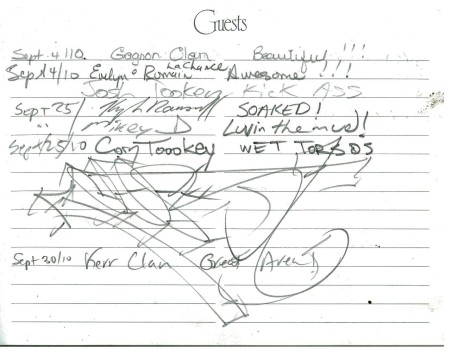 Guests
Sept. 4/10 Gagnon Clan Beautiful!!!
Sept 4/10 Evelyn & Romain LaChance Awesome!!!
Josh Tookey Kick Ass
Sept 25/ SOAKED!
" Mikey D Luvin the mud!
Sept/25/10 Corn Toookey WET TORSOS
Sept 30/10 Kerr Clan Great Area!